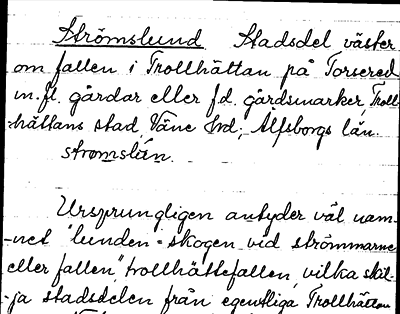 Strömslund Stadsdel väster
om fallen i Trollhättan på Torsered
m.fl. gårdar eller f.d. gårdsmarker, Troll-
-hättans stad, Väne hrd, Älfsborgs län.
stromslún
Ursprungligen antyder väl nam-
-net "lunden = skogen vid strömmarne
eller fallen", trollhättefallen, vilka skil-
-ja stadsdelen från egentliga Trollhättan